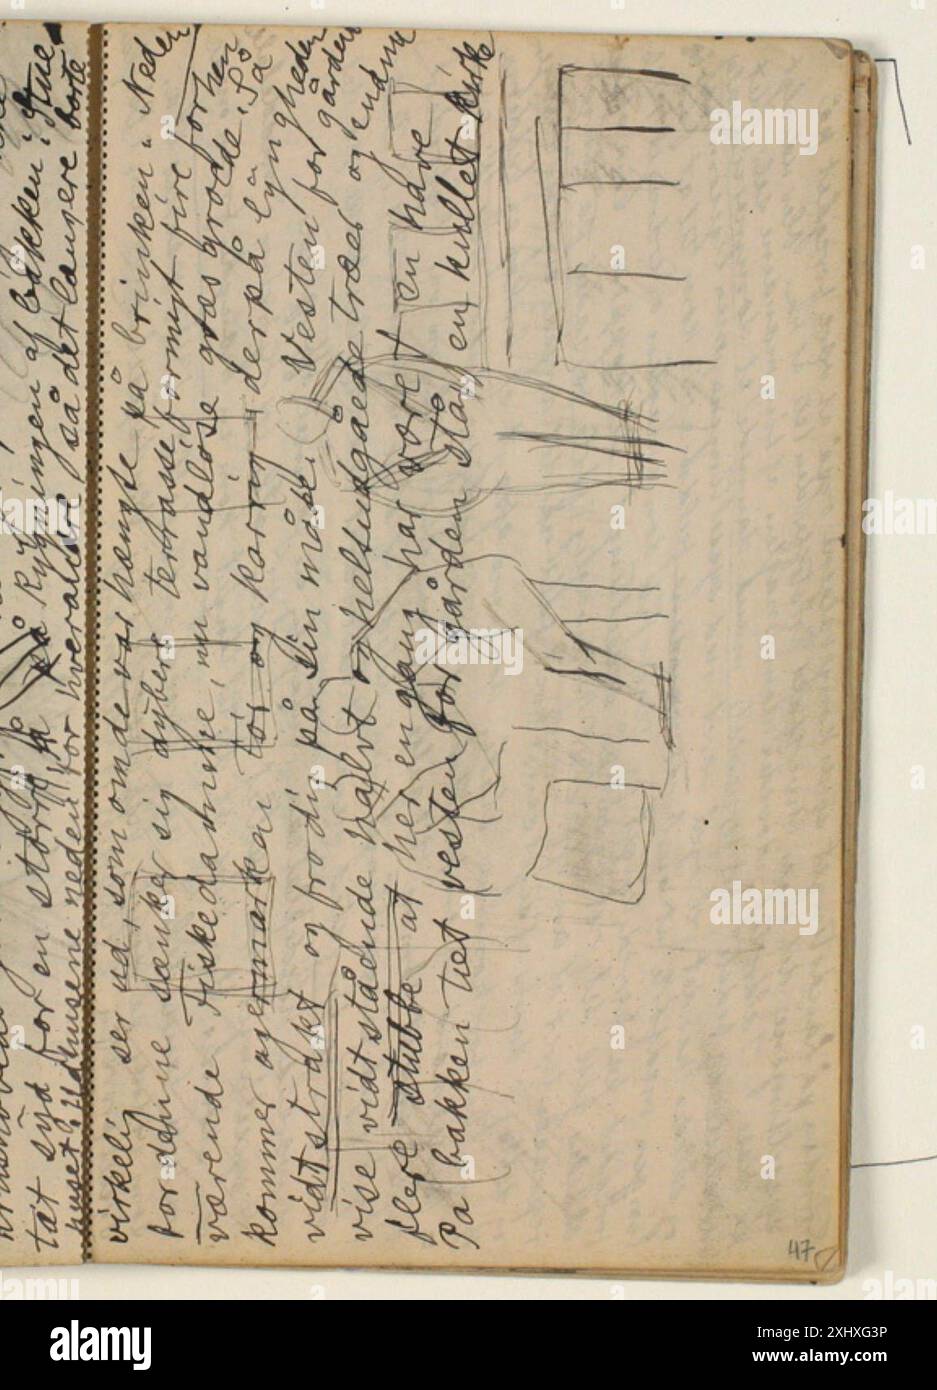 på Rygningen af bakken: stue
tæt syd for en stor
huset. Udhusene neden for hverandre så det længere borte
virkelig ser ud som om de var hængte på brinken. Neden
for denne sænker sig dybere terrasseformigt fire forhen
værende Fiskedamme, nu vandløse græsgroede. På
kommer agermarker tør og karrig derpå lyngheden
vidtstrakt og frodig på sin måde. Vesten for gården
vise vidtstående halvt og helt udgåede træer og endnu
flere stubbe at her engang har været en have
På bakken tæt vesten for gården står en kullet kirke
47
alamy
Image ID: 2XHXG3P
www.alamy.com